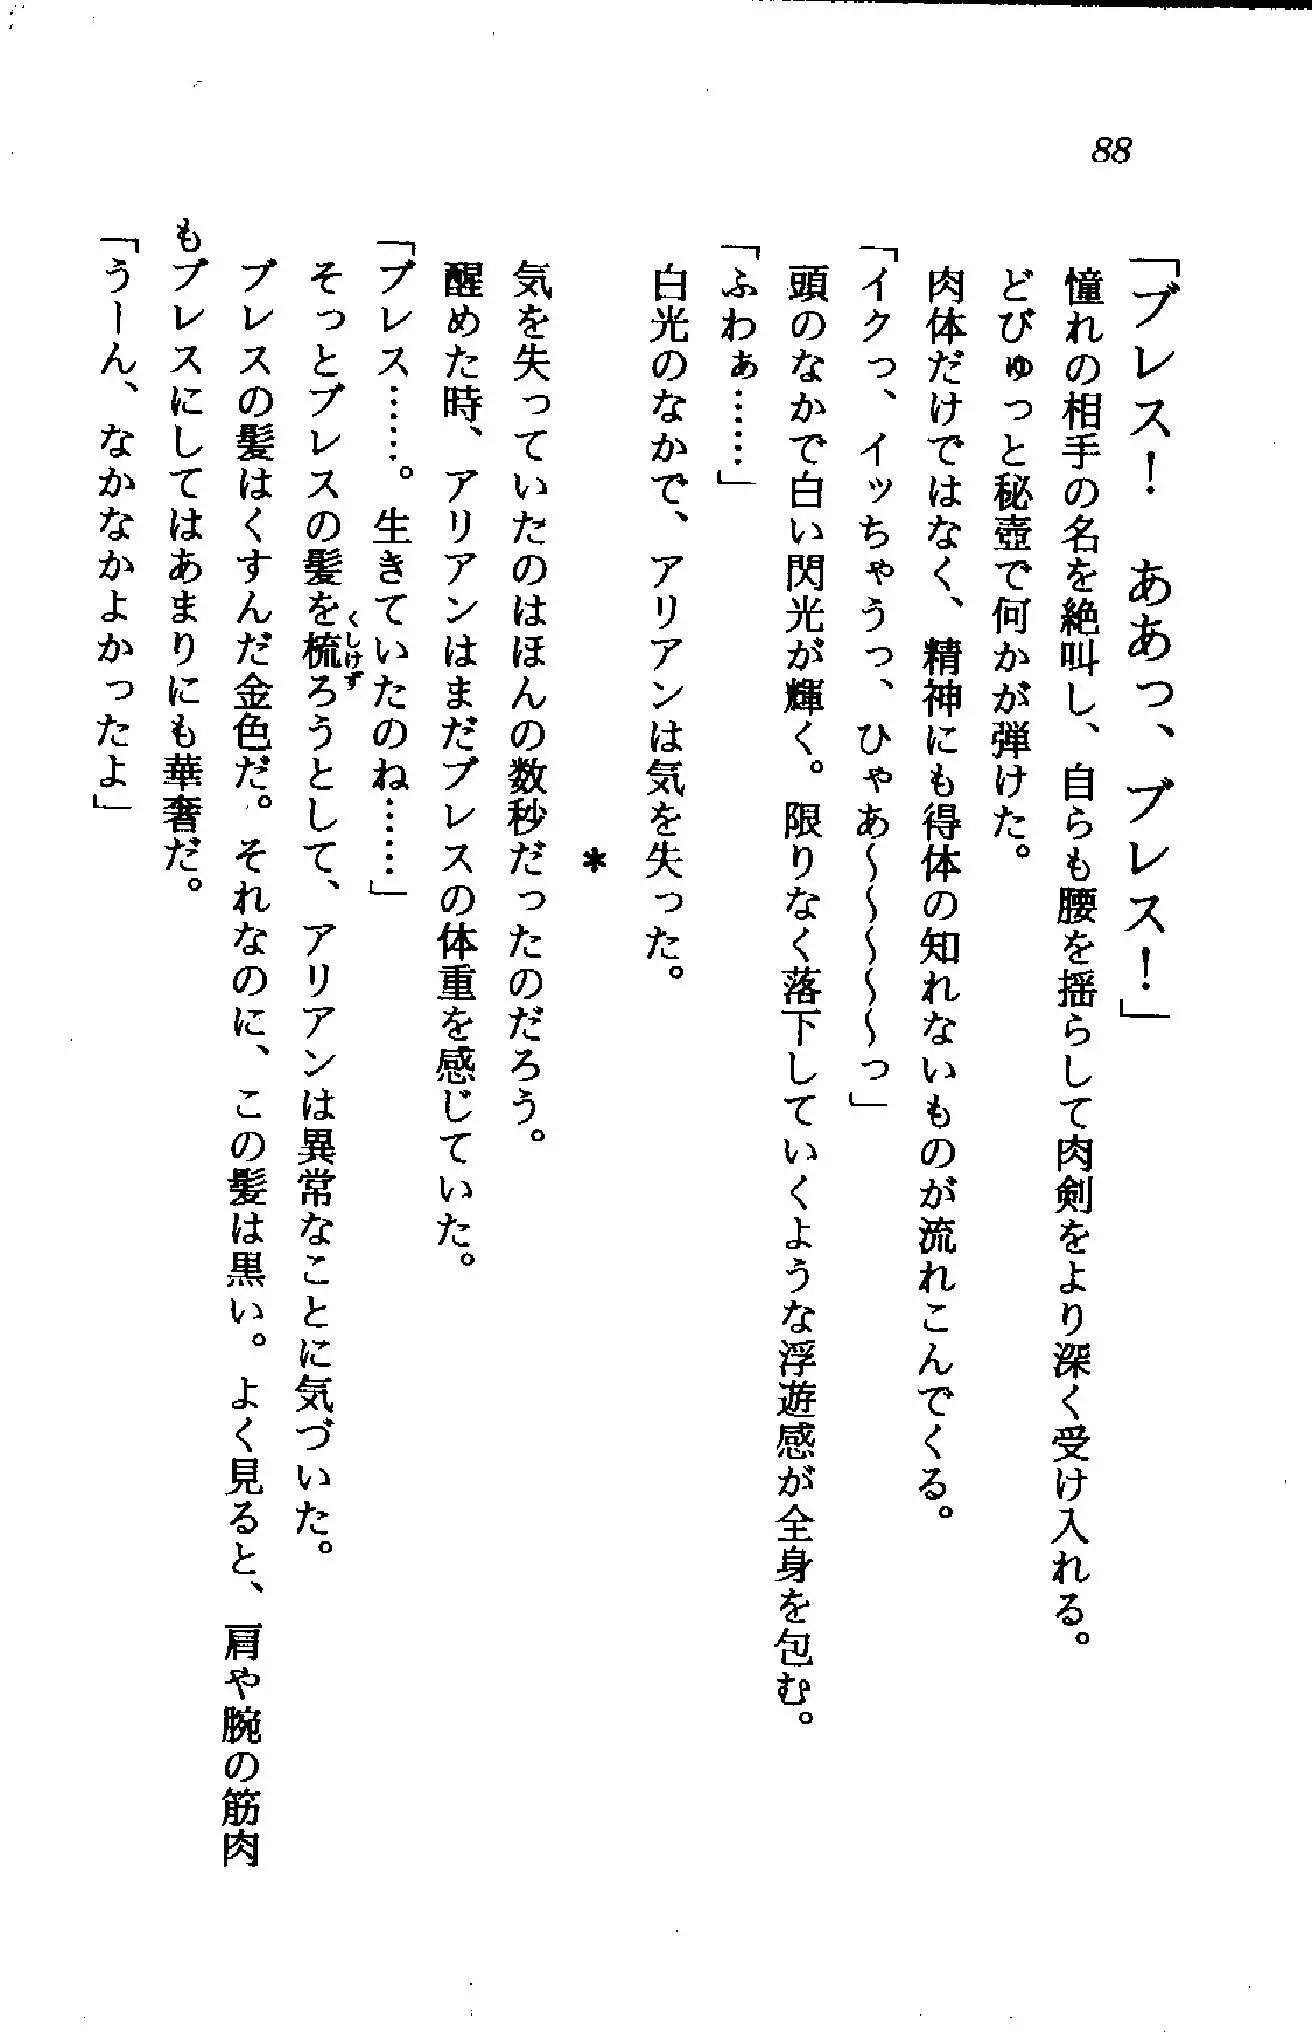 88
「ブレス！　ああっ、ブレス！」
憧れの相手の名を絶叫し、自らも腰を揺らして肉剣をより深く受け入れる。
どびゅっと秘壺で何かが弾けた。
肉体だけではなく、精神にも得体の知れないものが流れこんでくる。
「イクっ、イッちゃうっ、ひゃあ～～～～～っ」
頭のなかで白い閃光が輝く。限りなく落下していくような浮遊感が全身を包む。
「ふわぁ……」
白光のなかで、アリアンは気を失った。
＊
気を失っていたのはほんの数秒だったのだろう。
醒めた時、アリアンはまだブレスの体重を感じていた。
「ブレス……。生きていたのね……」
そっとブレスの髪を梳ろうとして、アリアンは異常なことに気づいた。
くしけず
ブレスの髪はくすんだ金色だ。それなのに、この髪は黒い。よく見ると、肩や腕の筋肉
もブレスにしてはあまりにも華奢だ。
「うーん、なかなかよかったよ」